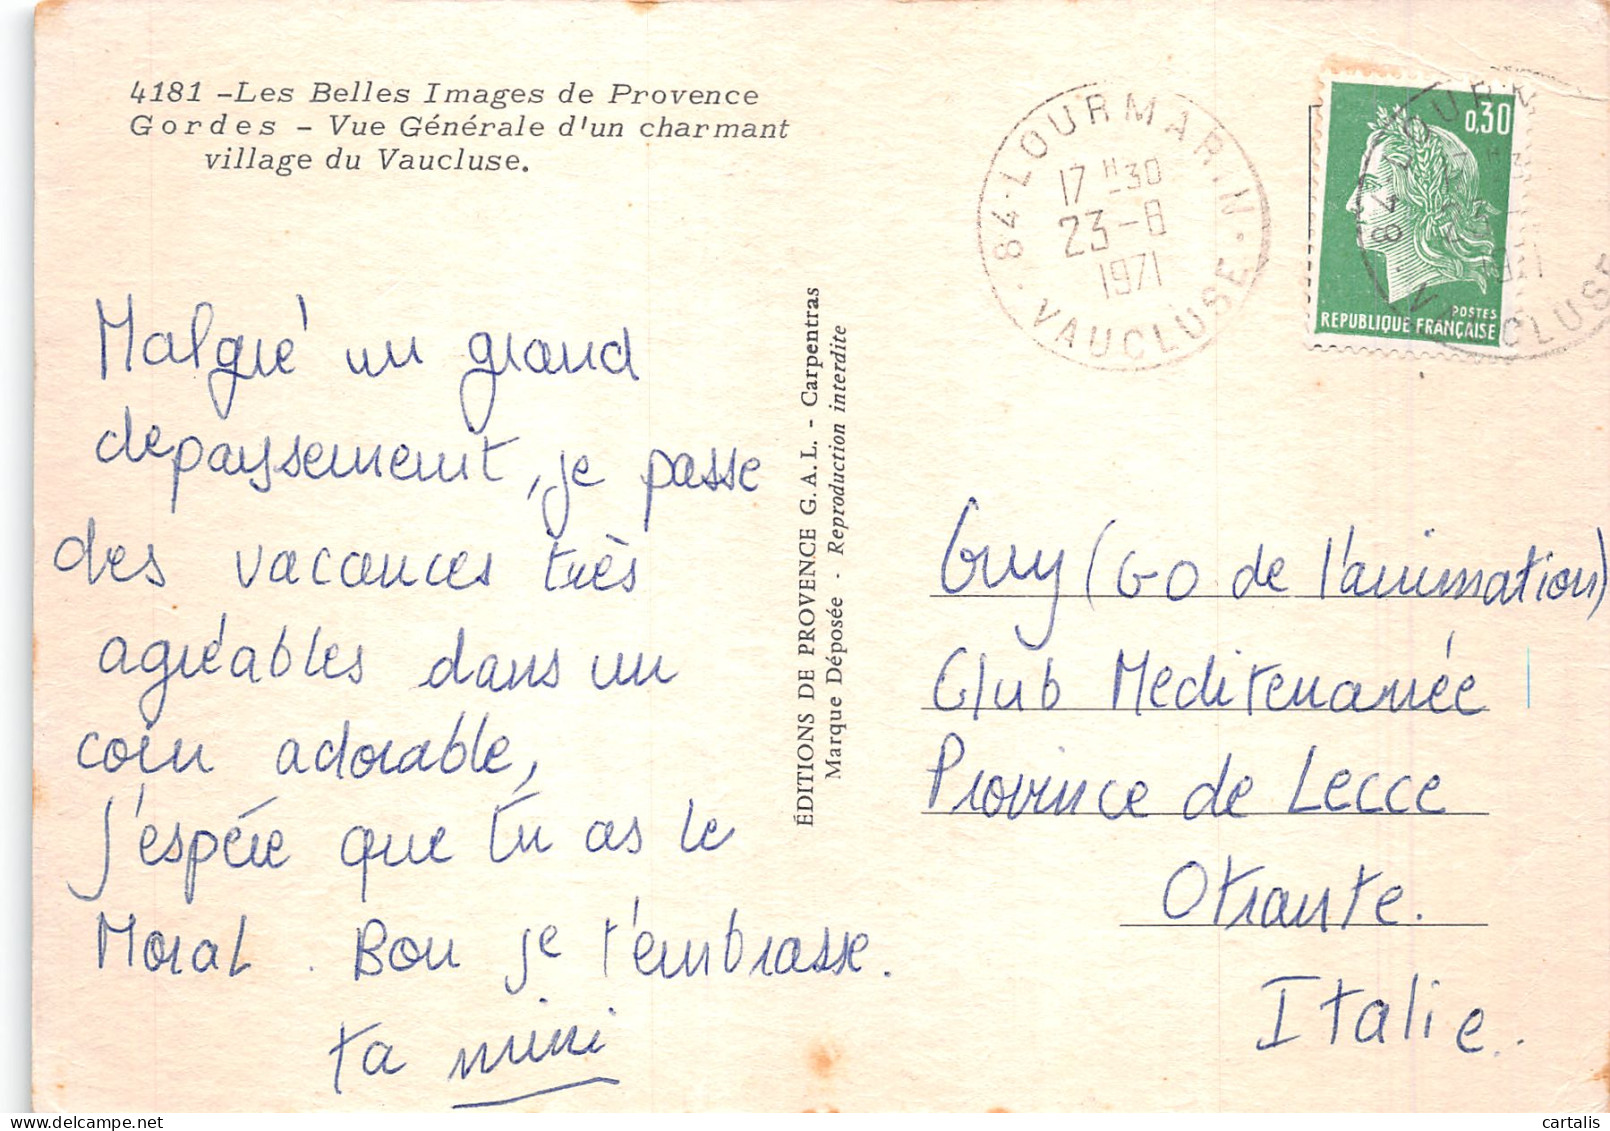 4181 -Les Belles Images de Provence
Gordes - Vue Générale d'un charmant
village du Vaucluse.
Malgré un grand
depaysement, je passe
des vacances très
agréables dans un
coin adorable,
j'espére que tu as le
Moral. Bon je t'embrasse.
ta mini
ÉDITIONS DE PROVENCE G.A.L. - Carpentras
Marque Déposée - Reproduction interdite
84-LOURMARIN
17 H-30
23-8
1971
VAUCLUSE
0,30
POSTES
REPUBLIQUE FRANÇAISE
84-LOURM
1971
VAUCLUSE
Guy (GO de l'animation)
Club Mediterranée
Province de Lecce
Otrante.
Italie..
cartalis.com